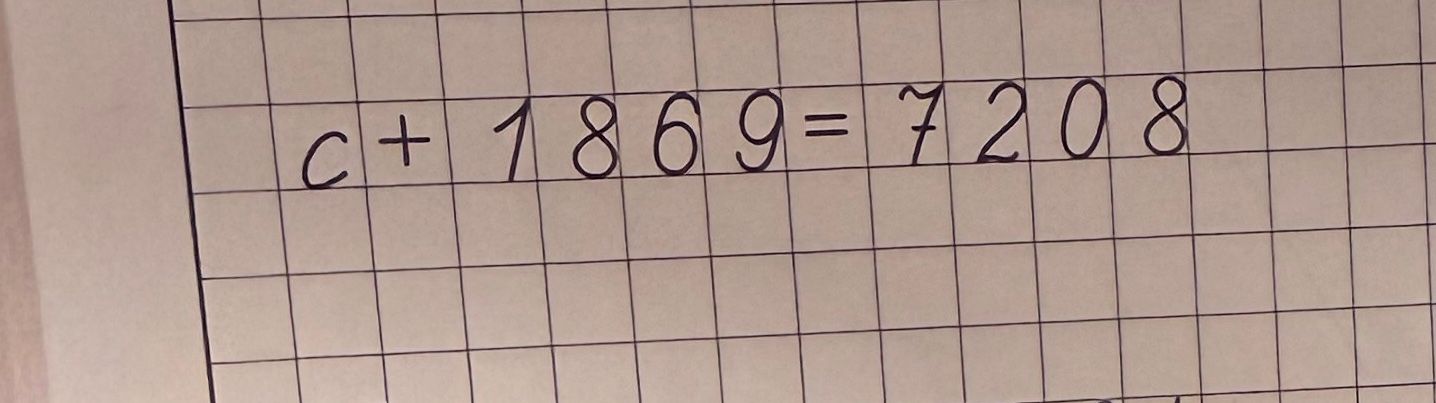 c + 1869 = 7208